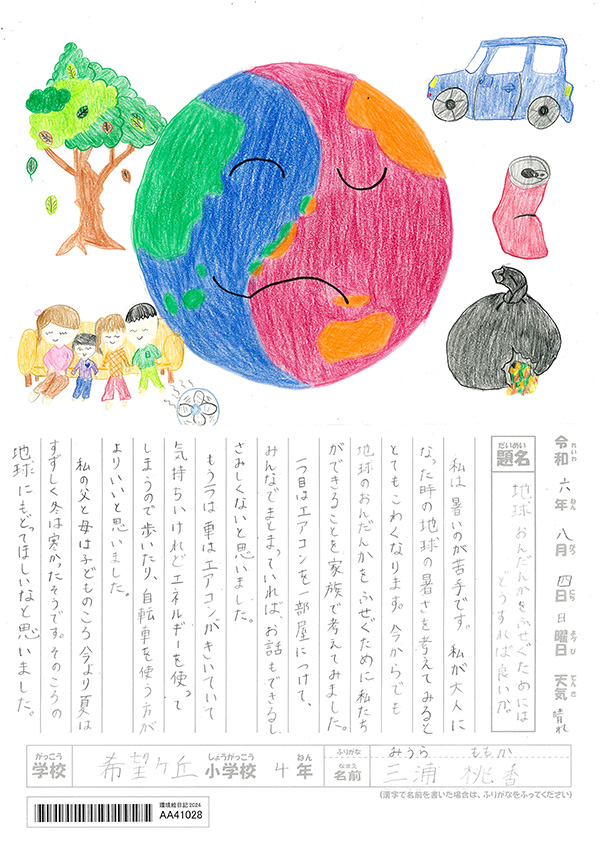 令和六年八月四日日曜日天気晴れ
れいわ ねん がつ にち ようび てんき
だいめい
題名
地球おんだんかをふせぐためには
どうすれば良いか。
私は暑いのが苦手です。私が大人に
なった時の地球の暑さを考えてみると
とてもこわくなります。今からでも
地球のおんだんかをふせぐために私たち
ができることを家族で考えてみました。
一つ目はエアコンを一部屋につけて、
みんなでまとまっていれば、お話もできるし
さみしくないと思いました。
もう一つは車はエアコンがきいていて
気持ちいいけれどエネルギーを使って
しまうので歩いたり、自転車を使う方が
よりいいと思いました。
私の父と母は子どものころ今より夏は
すずしく冬は寒かったそうです。そのころの
地球にもどってほしいなと思いました。
がっこう しょうがっこう ねん ふりがな みうら ももか
学校 希望ケ丘 小学校 4年 なまえ 名前 三浦 桃香
(漢字で名前を書いた場合は、ふりがなをふってください)
環境絵日記2024
AA41028